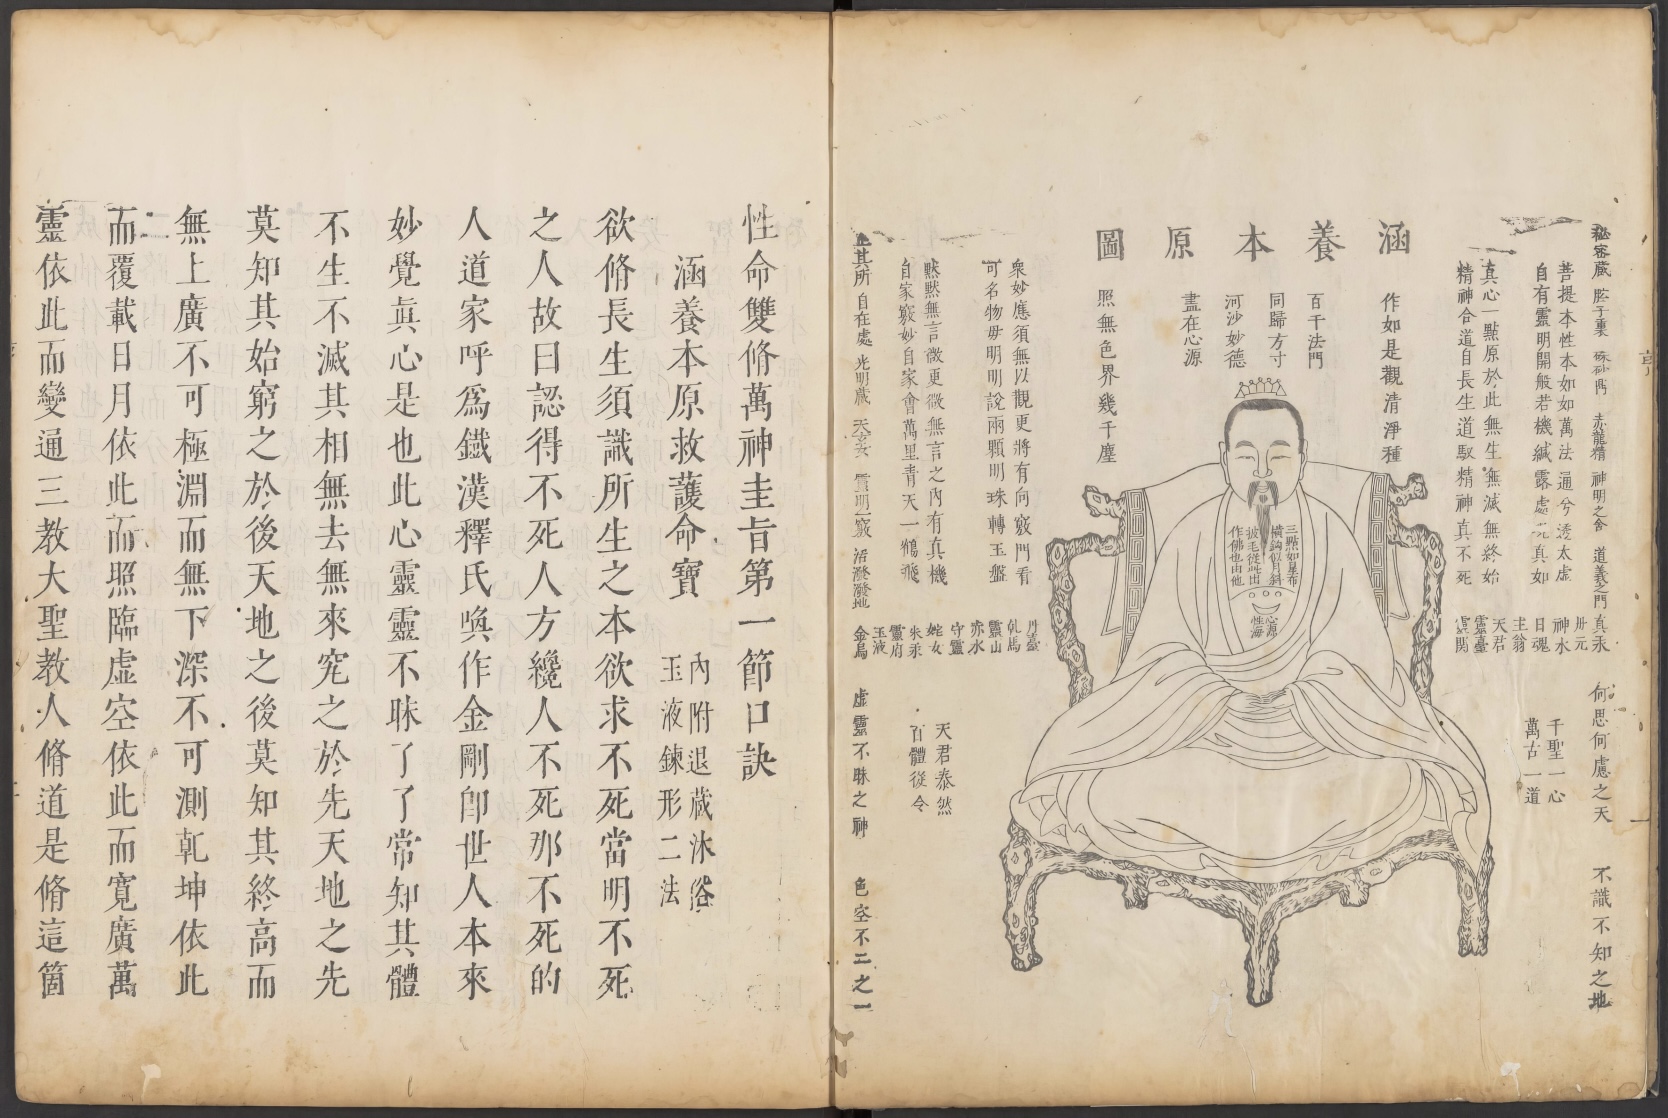 涵養本原圖
秘密藏 𦙶子裏 赤龍精 神明之舍 道義之門 真汞
菩提本性本如如萬法通兮透太虛
自有靈明開般若機緘露處元真如
真心一點原於此無生無滅無終始
精神合道自長生道馭精神真不死
作如是觀清淨種
百千法門
同歸方寸
河沙妙德
盡在心源
照無色界幾千塵
眾妙應須無以觀更將有向竅門看
可名物毋明明說兩顆明珠轉玉盤
默默無言微更微無言之內有真機
自家竅妙自家會萬里青天一鶴飛
止其所 自在處 光明藏 天玄女 靈明一竅 活潑潑地
三點如星布
橫鈎似月斜
披毛從此出
作佛也由他
心源
性海
丹元
神水
日魂
主翁
天君
靈臺
靈關
丹臺
乾馬
靈山
赤水
守靈
姹女
朱汞
靈府
玉液
金烏
何思何慮之天
千聖一心
萬古一道
不識不知之地
天君泰然
百體從令
虛靈不昧之神
色空不二之一
性命雙脩萬神圭旨第一節口訣
涵養本原救護命寶 內附退藏沐浴
玉液鍊形二法
欲脩長生須識所生之本欲求不死當明不死
之人故曰認得不死人方纔人不死那不死的
人道家呼爲鐵漢釋氏喚作金剛卽世人本來
妙覺眞心是也此心靈靈不昧了了常知其體
不生不滅其相無去無來究之於先天地之先
莫知其始窮之於後天地之後莫知其終高而
無上廣不可極淵而無下深不可測乾坤依此
而覆載日月依此而照臨虛空依此而寬廣萬
靈依此而變通三教大聖教人脩道是脩這箇